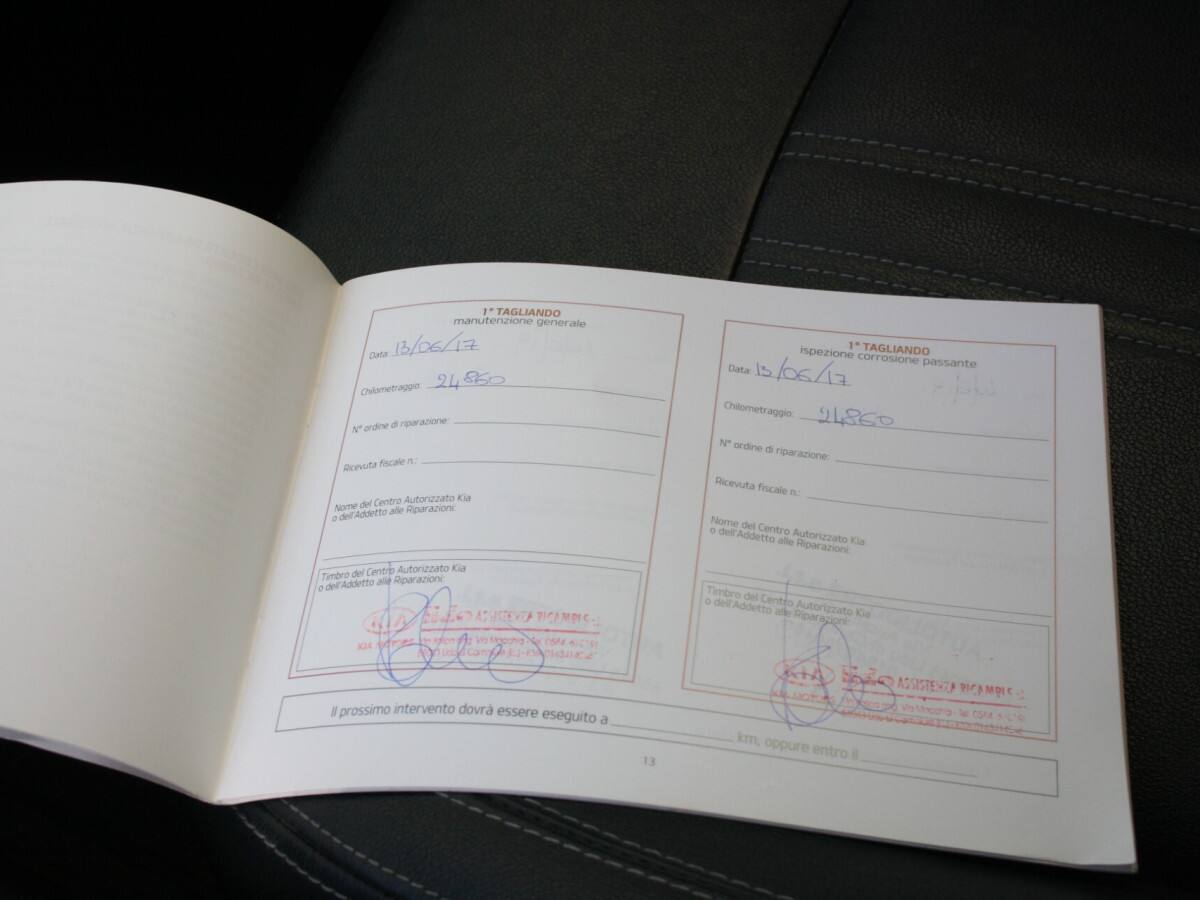 1° TAGLIANDO
manutenzione generale
Data: 13/06/17
Chilometraggio: 24860
N° ordine di riparazione:
Ricevuta fiscale n.:
Nome del Centro Autorizzato Kia
o dell'Addetto alle Riparazioni:
Timbro del Centro Autorizzato Kia
o dell'Addetto alle Riparazioni:
KIA ASSISTENZA RICAMBI
KIA MOTORS
1° TAGLIANDO
ispezione corrosione passante
Data: 13/06/17
Chilometraggio: 24860
N° ordine di riparazione:
Ricevuta fiscale n.:
Nome del Centro Autorizzato Kia
o dell'Addetto alle Riparazioni:
Timbro del Centro Autorizzato Kia
o dell'Addetto alle Riparazioni:
KIA ASSISTENZA RICAMBI
KIA MOTORS
Il prossimo intervento dovrà essere eseguito a km, oppure entro il
13